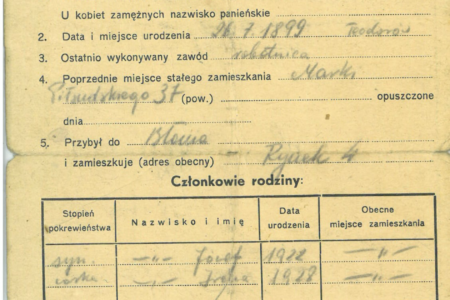 U kobiet zamężnych nazwisko panieńskie
2. Data i miejsce urodzenia 26.7.1899 Teodorów
3. Ostatnio wykonywany zawód robotnica
4. Poprzednie miejsce stałego zamieszkania Marki
Piłsudskiego 37 (pow.) opuszczone
dnia
5. Przybył do Błonia
i zamieszkuje (adres obecny) Rynek 4
Członkowie rodziny:
Stopień pokrewieństwa Nazwisko i imię Data urodzenia Obecne miejsce zamieszkania
syn —"— Józef 1922 —"—
córka —"— Irena 1928 —"—